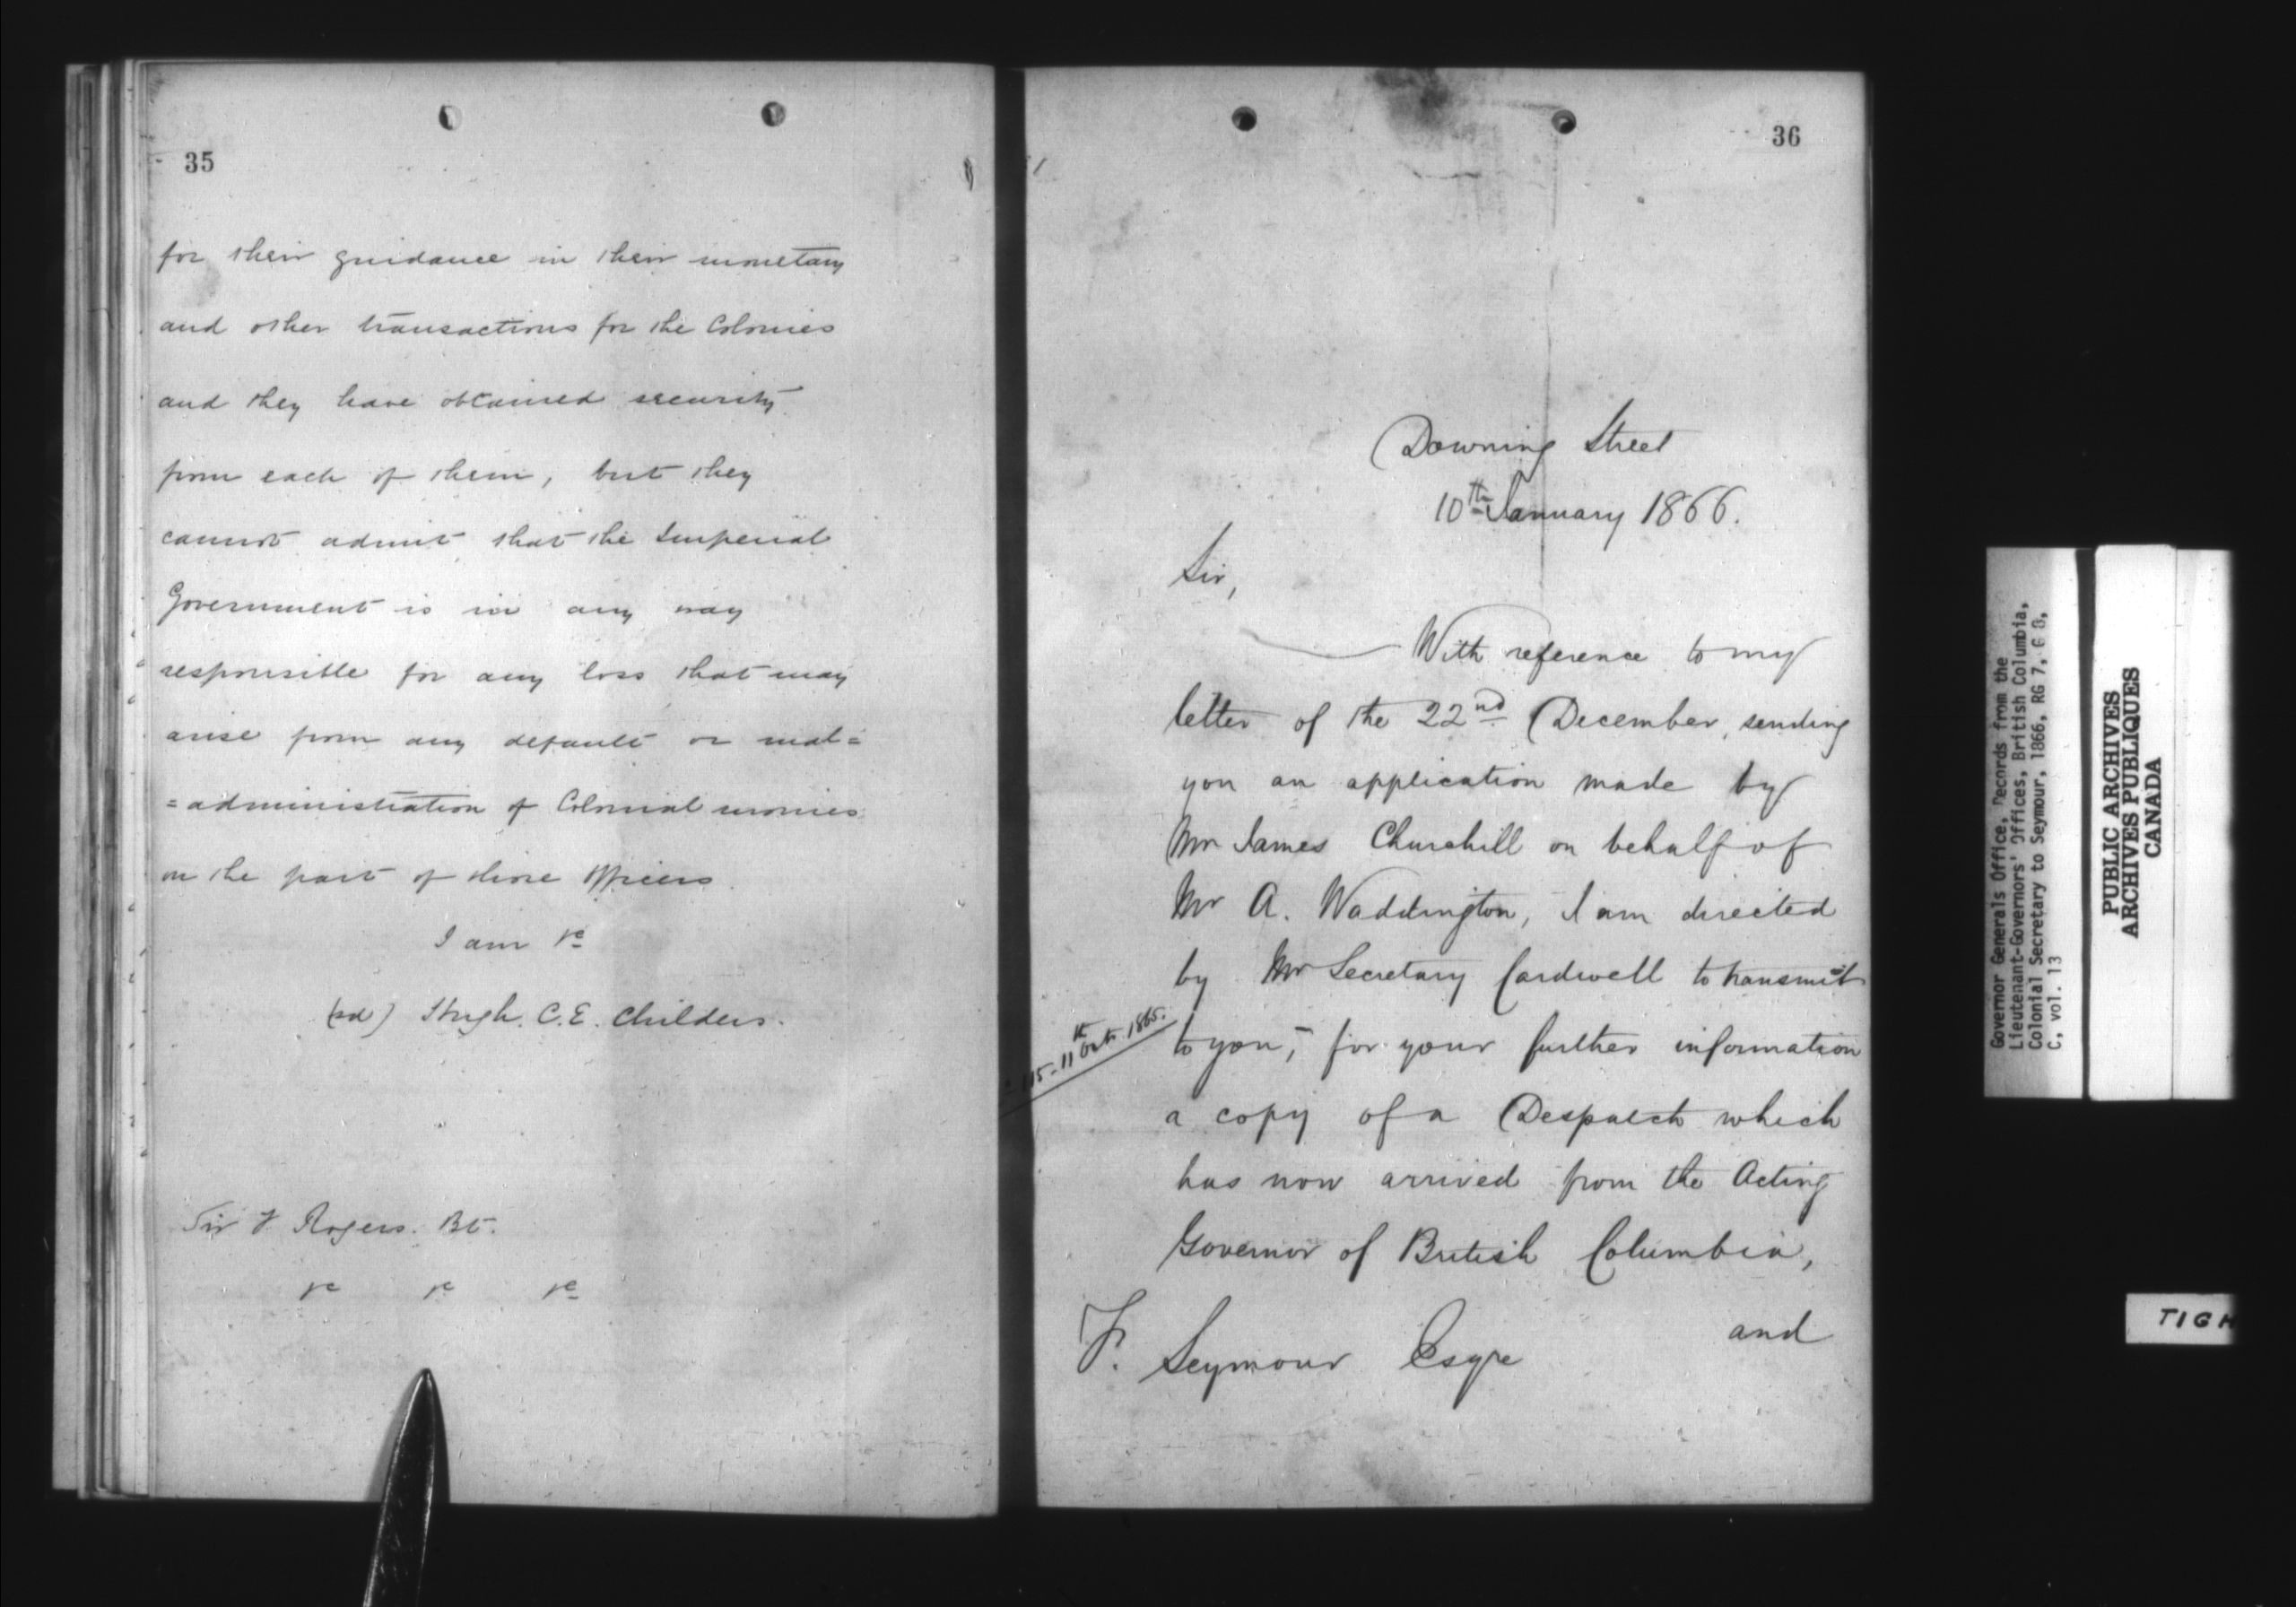 35
for their guidance in their monetary
and other transactions for the Colonies
and they have obtained security
from each of them, but they
cannot admit that the Imperial
Government is in any way
responsible for any loss that may
arise from any default or mal=
=administration of Colonial monies
on the part of those Officers.
I am &c
(sd) Hugh. C.E. Childers.
Sir F Rogers. Bt.
&c &c &c
36
Downing Street
10th January 1866.
Sir,
With reference to my
letter of the 22nd December, sending
you an application made by
Mr James Churchill on behalf of
Mr A. Waddington, I am directed
by Mr Secretary Cardwell to transmit
115-11th Oct. 1865.
to you, for your further information
a copy of a Despatch which
has now arrived from the Acting
Governor of British Columbia,
and
F. Seymour Esqre
Governor Generals Office, Records from the
Lieutenant-Governors' Offices, British Columbia,
Colonial Secretary to Seymour, 1866, RG 7, G 8,
C, vol. 13
PUBLIC ARCHIVES
ARCHIVES PUBLIQUES
CANADA
TIGH